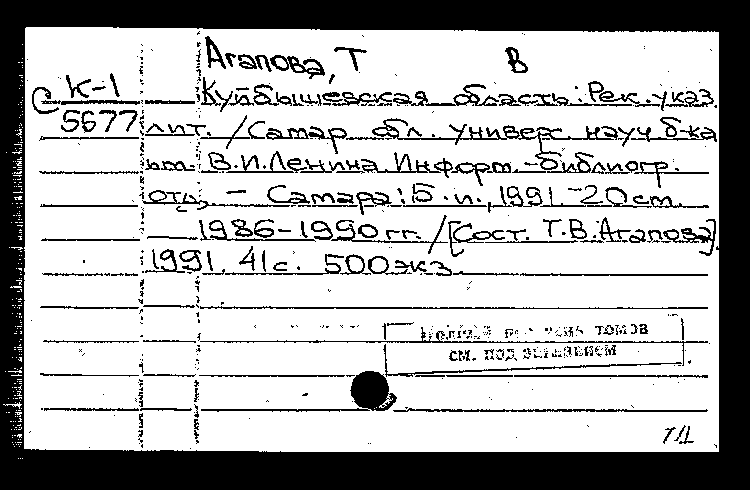 Агапова, Т В
С К-1
5677
Куйбышевская область: Рек. указ.
лит. / Самар обл. универс. науч б-ка
им. В.И.Ленина. Информ.-библиогр.
отд. – Самара: Б. и., 1991. – 20 см.
1986-1990 гг. / [Сост. Т.В.Агапова].
1991. 41 с. 500 экз.
томов
см. под заглавием